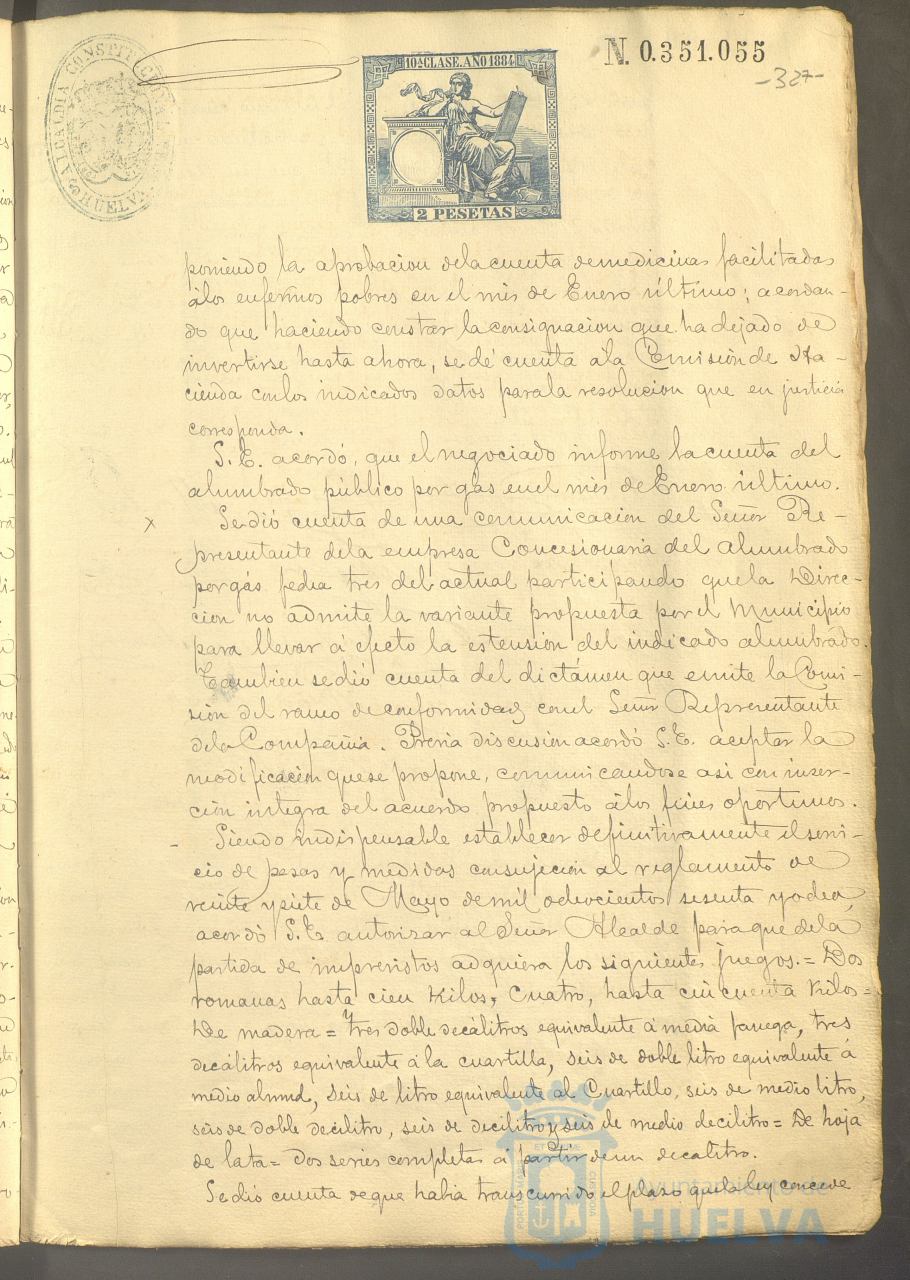 ALCALDIA CONSTITUCIONAL
HUELVA
10ª CLASE. AÑO 1884
2 PESETAS
N. 0.351.055
-327-
poniendo la aprobacion dela cuenta demedicinas facilitadas
álos enfermos pobres en el mes de Enero último; acordan-
do que haciendo constar la consignacion que ha dejado de
invertirse hasta ahora, se dé cuenta á la Comisión de Ha-
cienda conlos indicados datos parala resolucion que en justicia
corresponda.
S. E. acordó, que el negociado informe la cuenta del
alumbrado público por gas enel mes de Enero último.
x Sedió cuenta de una comunicacion del Señor Re-
presentante dela empresa Concesionaria del alumbrado
por gás fecha tres del actual participando quela Direc-
cion no admite la variante propuesta por el Municipio
para llevar á efecto la estensión del indicado alumbrado.
Tambien sedió cuenta del dictámen que emite la Comi-
sión del ramo de conformidad con el Señor Representante
dela Compañia. Prévia discusion acordó S. E. aceptar la
modificación quese propone, comunicandose asi con inser-
ción integra del acuerdo propuesto álos fines oportunos.
- Siendo indispensable establecer definitivamente el servi-
cio de pesas y medidas consujeción al reglamento de
veinte ysiete de Mayo de mil ochocientos sesenta yocho,
acordó S. E. autorizar al Señor Alcalde para que dela
partida de imprevistos adquiera los siguientes juegos. = Dos
romanas hasta cien Kilos, Cuatro, hasta cincuenta Kilos=
De madera = tres doble decálitros equivalente á media fanega, tres
decálitros equivalente á la cuartilla, seis de doble litro equivalente á
medio almud, seis de litro equivalente al Cuartillo, seis de medio litro,
seis de doble decilitro, seis de decilitro y seis de medio decilitro = De hoja
de lata = Dos series completas á partir de un decalitro.
Sedió cuenta deque habia transcurrido el plazo quela ley concede
Ayuntamiento de
HUELVA